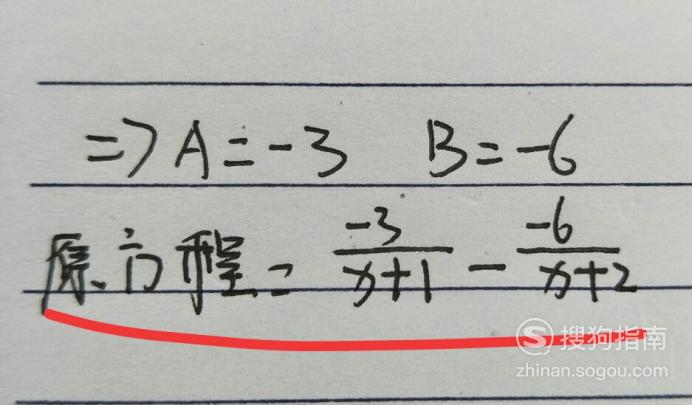 => A = -3 B = -6
原方程 = -3/(x+1) - -6/(x+2)
S 搜狗指南
zhinan.sogou.com